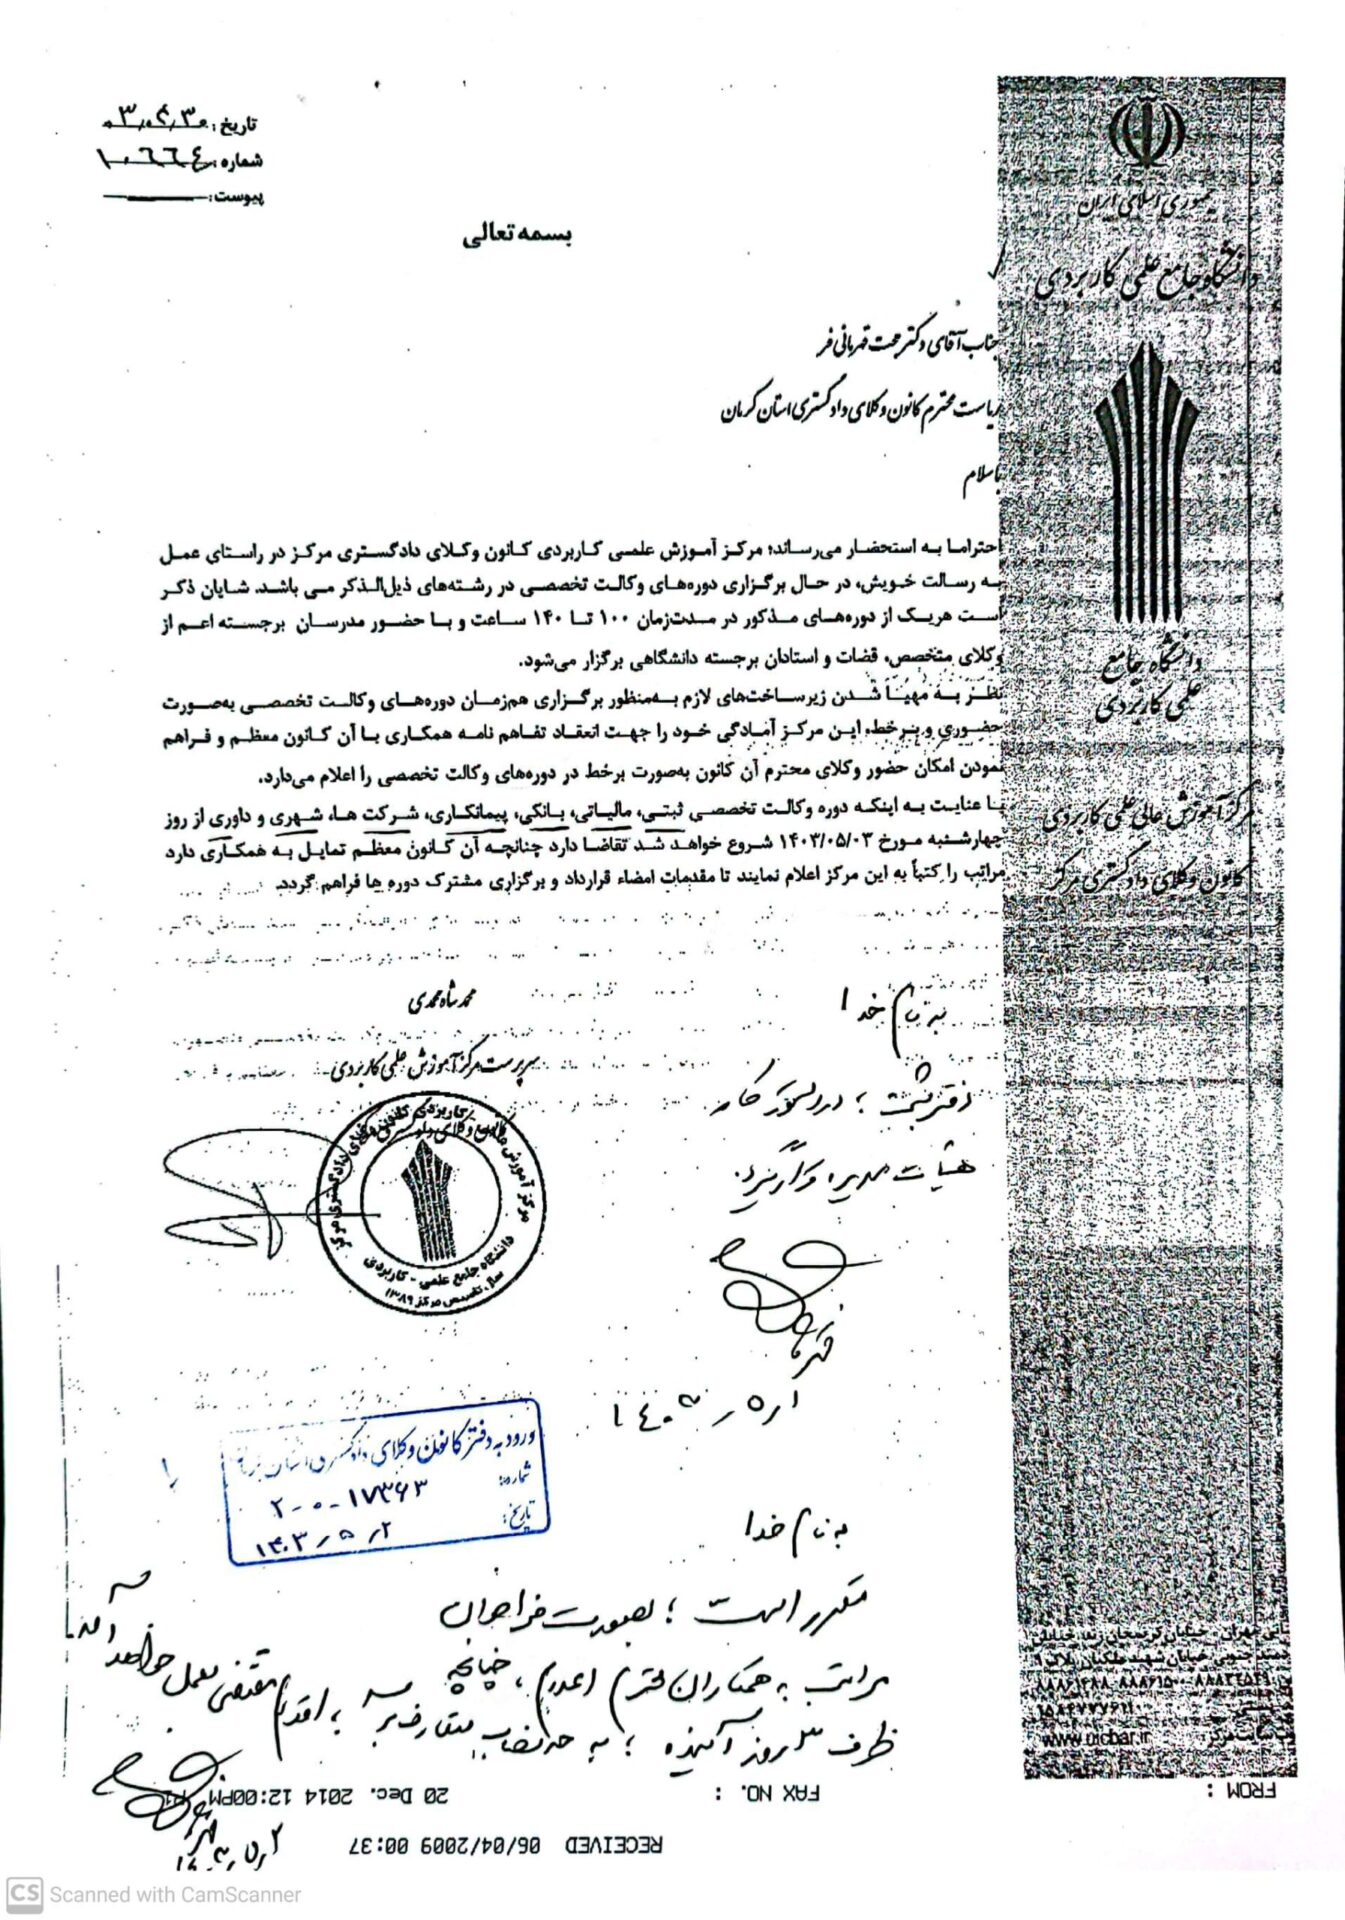 تاریخ: ۰۳,۰۴,۳۰
شماره: ۱۰۶۶۴
پیوست:
بسمه تعالی
جمهوری اسلامی ایران
دانشگاه جامع علمی کاربردی
جناب آقای دکتر حجت قهرمانی فر
ریاست محترم کانون وکلای دادگستری استان کرمان
باسلام
احتراما به استحضار می‌رساند؛ مرکز آموزش علمی کاربردی کانون وکلای دادگستری مرکز در راستای عمل
به رسالت خویش، در حال برگزاری دوره‌های وکالت تخصصی در رشته‌های ذیل‌الذکر می باشد. شایان ذکر
است هریک از دوره‌های مذکور در مدت‌زمان ۱۰۰ تا ۱۴۰ ساعت و با حضور مدرسان برجسته اعم از
وکلای متخصص، قضات و استادان برجسته دانشگاهی برگزار می‌شود.
نظر به مهیا شدن زیرساخت‌های لازم به‌منظور برگزاری هم‌زمان دوره‌های وکالت تخصصی به‌صورت
حضوری و برخط، این مرکز آمادگی خود را جهت انعقاد تفاهم نامه همکاری با آن کانون معظم و فراهم
نمودن امکان حضور وکلای محترم آن کانون به‌صورت برخط در دوره‌های وکالت تخصصی را اعلام می‌دارد.
با عنایت به اینکه دوره وکالت تخصصی ثبتی، مالیاتی، بانکی، پیمانکاری، شرکت ها، شهری و داوری از روز
چهارشنبه مورخ ۱۴۰۳/۰۵/۰۳ شروع خواهد شد تقاضا دارد چنانچه آن کانون معظم تمایل به همکاری دارد
مراتب را کتباً به این مرکز اعلام نمایند تا مقدمات امضاء قرارداد و برگزاری مشترک دوره ها فراهم گردد.
دانشگاه جامع
علمی کاربردی
مرکز آموزش عالی علمی کاربردی
کانون وکلای دادگستری مرکز
محمد شاه محمدی
سرپرست مرکز آموزش علمی کاربردی
دانشگاه جامع علمی - کاربردی
سال تاسیس مرکز ۱۳۸۹
به نام خدا
دفتر ؛ در دستور کار
هیئت مدیره قرار گیرد.
۱ر۵ر۱۴۰۳
ورود به دفتر کانون وکلای دادگستری استان
شماره: ۱۷۳۶۳-۲۰۰
تاریخ: ۲ر۵ر۱۴۰۳
به نام خدا
مقرر است ؛ بصورت فراخوان
مراتب به همکاران محترم اعلام، چنانچه
ظرف ۳ روز آینده ؛ به حد نصاب متعارف برسد ؛ اقدام مقتضی بعمل خواهد آمد.
۲ر۵ر
www.uicbar.ir
FROM :
FAX NO. :
20 Dec. 2014 12:00PM P1
RECEIVED 06/04/2009 00:37
CS Scanned with CamScanner